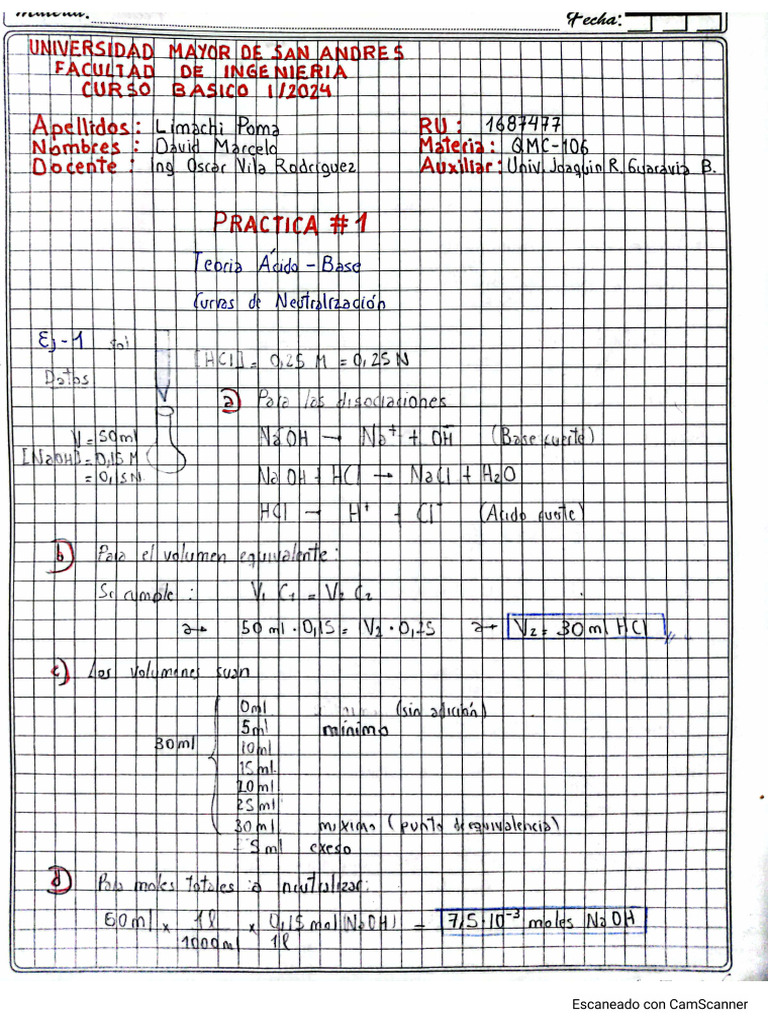 Fecha:
UNIVERSIDAD MAYOR DE SAN ANDRES
FACULTAD DE INGENIERIA
CURSO BASICO I/2024
Apellidos: Limachi Poma RU: 1687477
Nombres: David Marcelo Materia: QMC-106
Docente: Ing Oscar Vila Rodriguez Auxiliar: Univ. Joaquin R. Guaravia B.
PRACTICA #1
Teoria Ácido-Base
Curvas de Neutralización
Ej-1
[HCl] = 0,25 M = 0,25 N
Datos
a) Para las disociaciones
V = 50ml
NaOH → Na⁺ + OH⁻ (Base fuerte)
[NaOH] = 0,15 M
= 0,15 N
NaOH + HCl → NaCl + H2O
HCl → H⁺ + Cl⁻ (Acido fuerte)
b) Para el volumen equivalente:
Se cumple: V₁ C₁ = V₂ C₂
50 ml · 0,15 = V₂ · 0,25 V₂ = 30 ml HCl
c) Los volumenes
0ml (sin adición)
5ml minimo
30ml 10ml
15ml
20ml
25ml
30ml maximo (punto de equivalencia)
5ml exeso
d) Para moles totales a neutralizar:
50ml × 1l/1000ml × 0,15 mol(NaOH)/1l = 7,5·10⁻³ moles NaOH
Escaneado con CamScanner